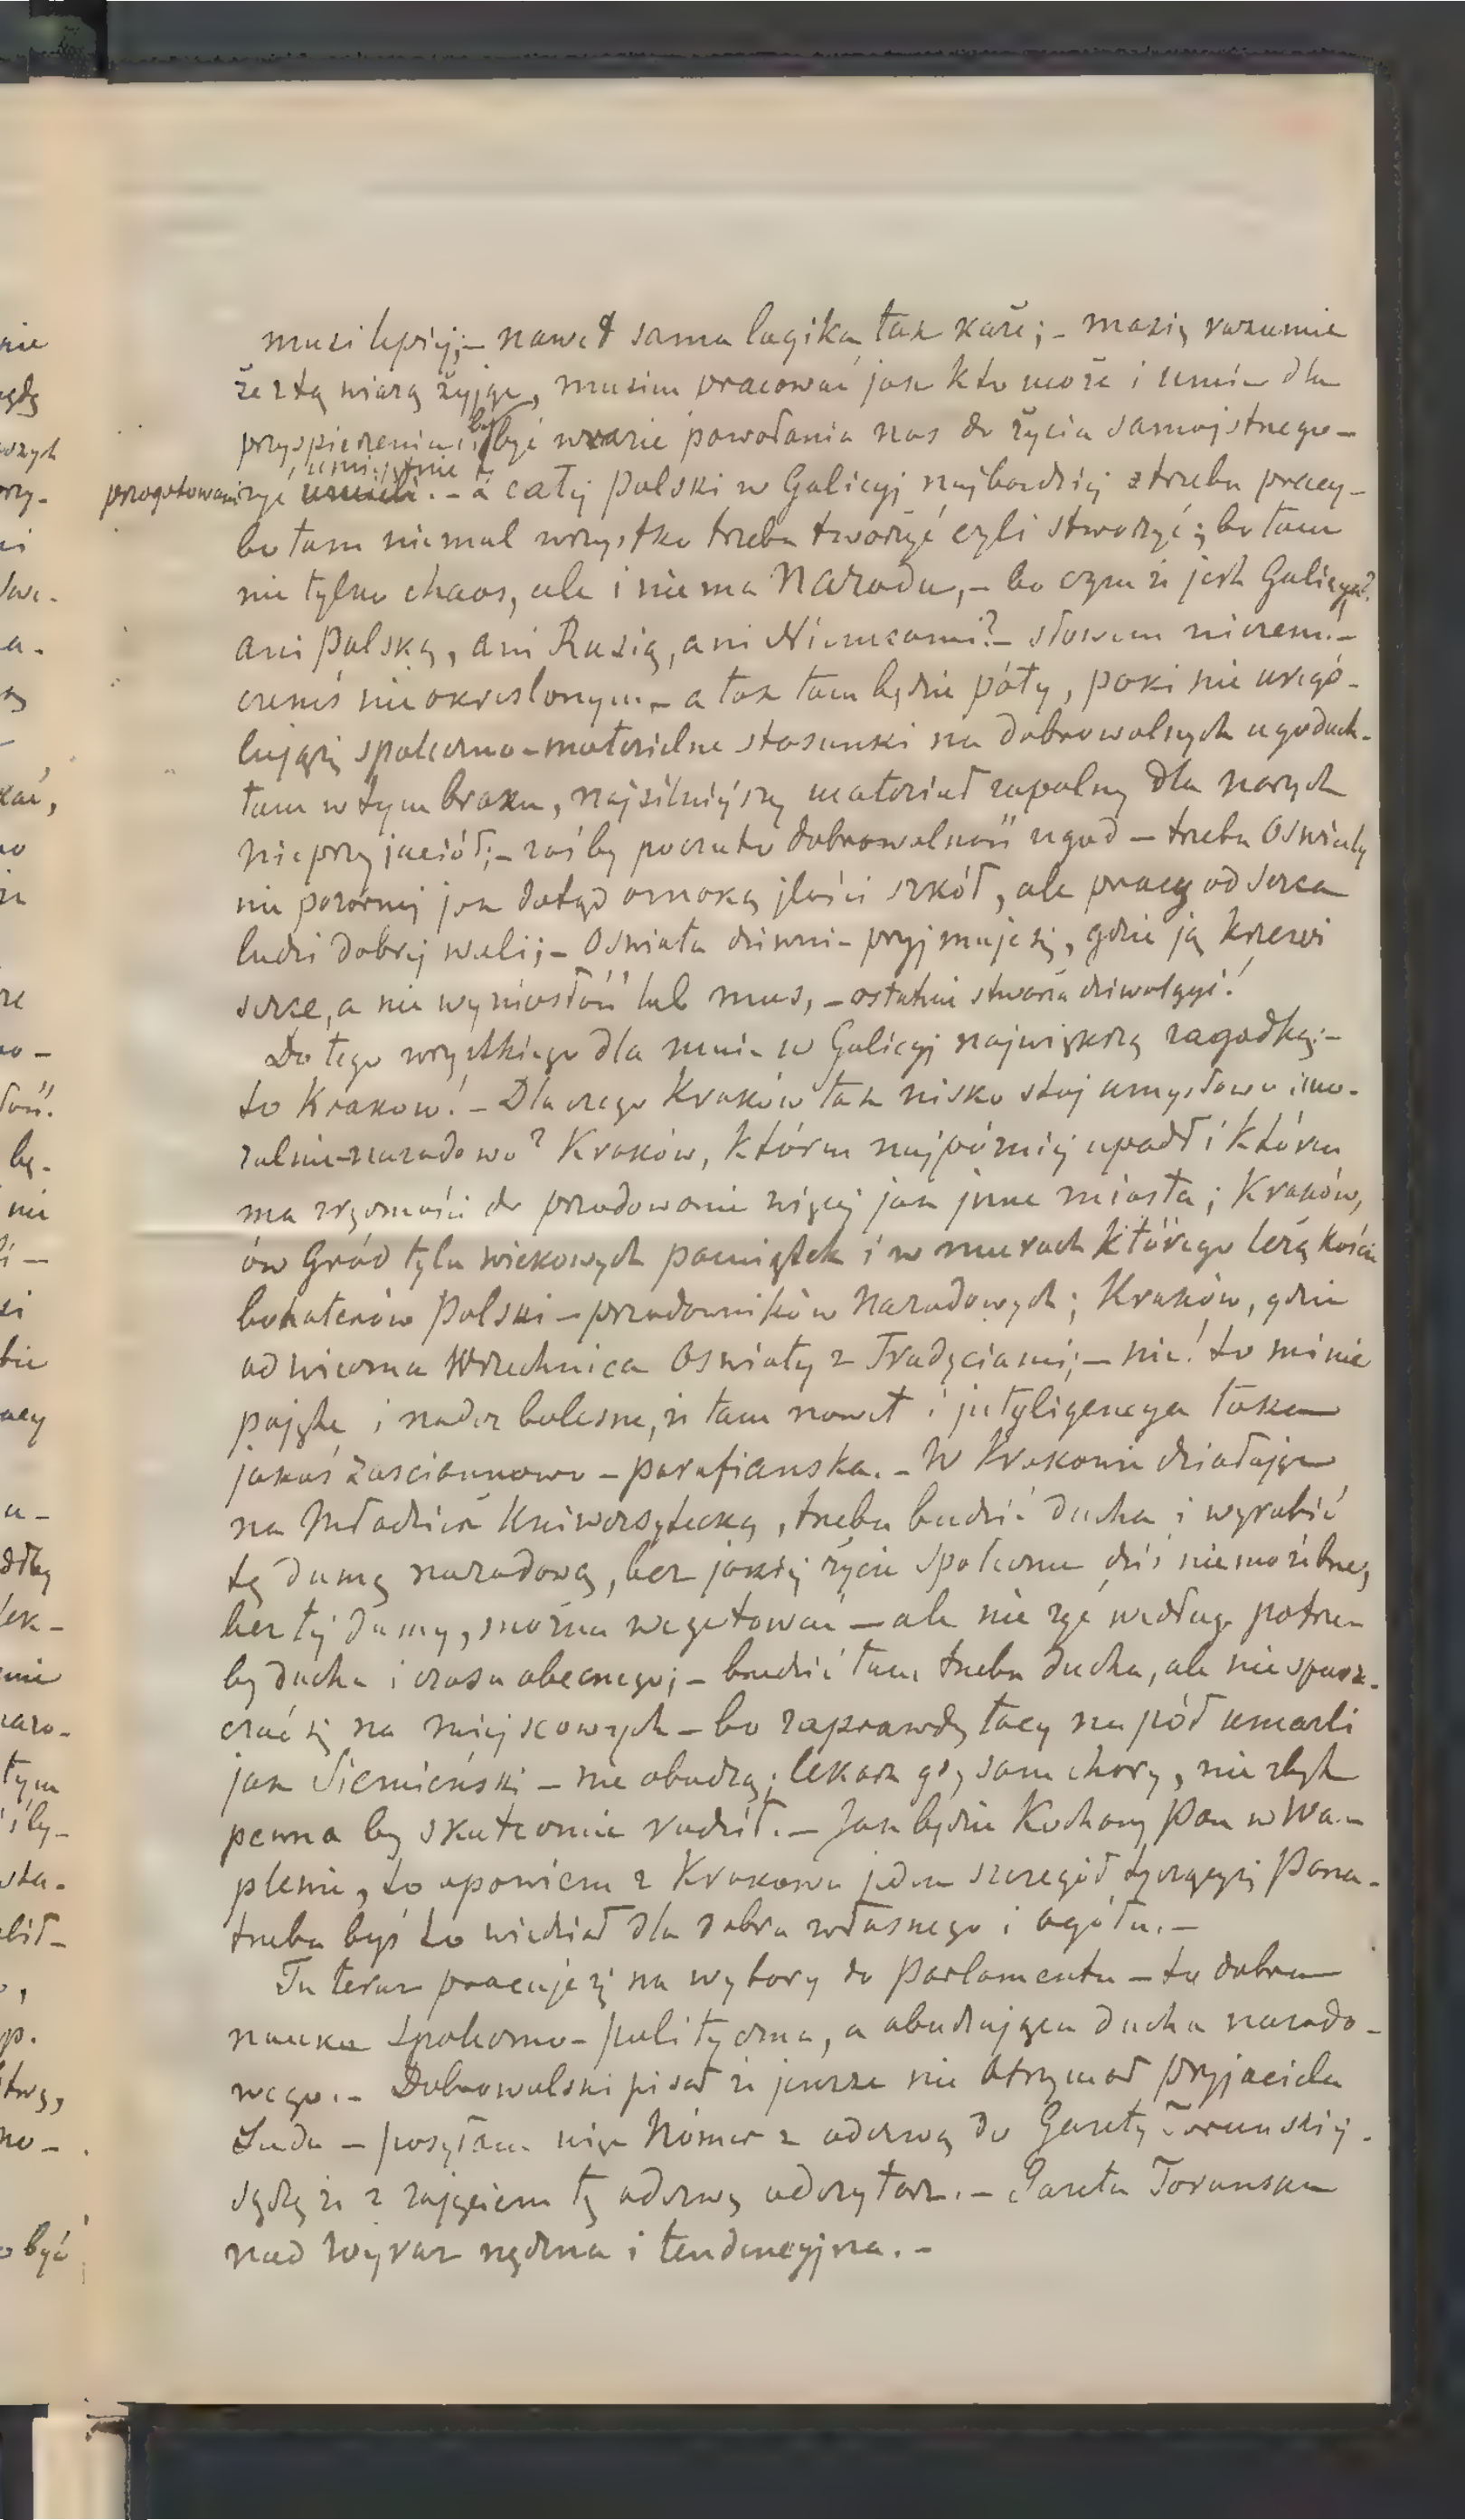 musi lepiej;– nawet sama logika tak każe;– ma się rozumie
że z tą wiarą żyjąc, musim pracować jak kto może i umie dla
przyspieszenia i by być w razie powołania nas do życia samoistnego –
przygotowani żyć umiejętnie.– a z całej Polski w Galicyj najbardziej ztrzeba pracy –
bo tam niemal wszystko trzeba tworzyć czyli stworzyć; bo tam
nie tylko chaos, ale i niema Narodu,– bo czem że jest Galicya?
ani Polską, ani Rusią, ani Niemcami?– słowem niczem!–
czemś nieokreslonym – a tak tam będzie póty, poki nie uregó-
lują się społeczno-materialne stosunki na dobrowolnych ugodach.
tam w tym braku, najsilniejszy materiał zapalny dla naszych
nieprzyjaciół;– zaś by poczuto dobrowolność ugod – trzeba Oswiaty
nie pozornej jak dotąd oznaką jlości szkół, ale pracy od serca
ludzi dobrej woli;– Oswiata dziwnie przyjmuje się, gdzie ją krzewi
serce, a nie wyniosłość lub mus, – ostatnie stwarza dziwolągi!
Do tego wszystkiego dla mnie w Galicyj największą zagadką;–
to Krakow!– Dla czego Kraków tak nisko stoj umysłowo i mo-
ralnie-narodowo? Kraków, któren najpózniej upadł i któren
ma zrzęności do przodowania więcej jak jnne miasta; Kraków,
ów Gród tylu wiekowych pamiątek i w murach którego leżą kości
bohaterów Polski – przodowników Narodowych; Kraków, gdzie
odwieczna Wszechnica Oswiaty z Tradyciami;– nie! to mi nie
pojęte i nader bolesne, że tam nawet i jnteligencya taka
jakaś zasciankowo – parafianska.– W Krakowie działając
na Młodzież Uniwersytecką, trzeba budzić ducha i wyrobić
tę dumę narodową, bez jakiej życie społeczne dziś niemożebne,
bez tej dumy, można wegetować – ale nie żyć według potrze-
by ducha i czasu obecnego;– budzić tam trzeba ducha, ale nie spusz-
czać się na miejscowych – bo zaprawdę tacy na pół umarli
jak Siemieński – nie obudzą; lekarz gdy sam chory, nie zbyt
pewna by skutecznie radził.– Jak będzie Kochany Pan w Wa-
plewie, to opowiem z Krakowa jeden szczegół tyczący się Pana –
trzeba byś to wiedział dla dobra własnego i ogółu.–
Tu teraz pracuje się na wybory do Parlamentu – to dobra
nauka społeczno-polityczna, a obudzająca ducha narodo-
wego.– Dobrowolski pisał że jeszcze nie otrzymał Przyjaciela
Ludu – posyłam więc Nómer z odezwą do Gazety Torunskiej.
sądzę że z zajęciem tę odezwę odczytasz.– Gazeta Torunska
nad wyraz nędzna i tendencyjna.–